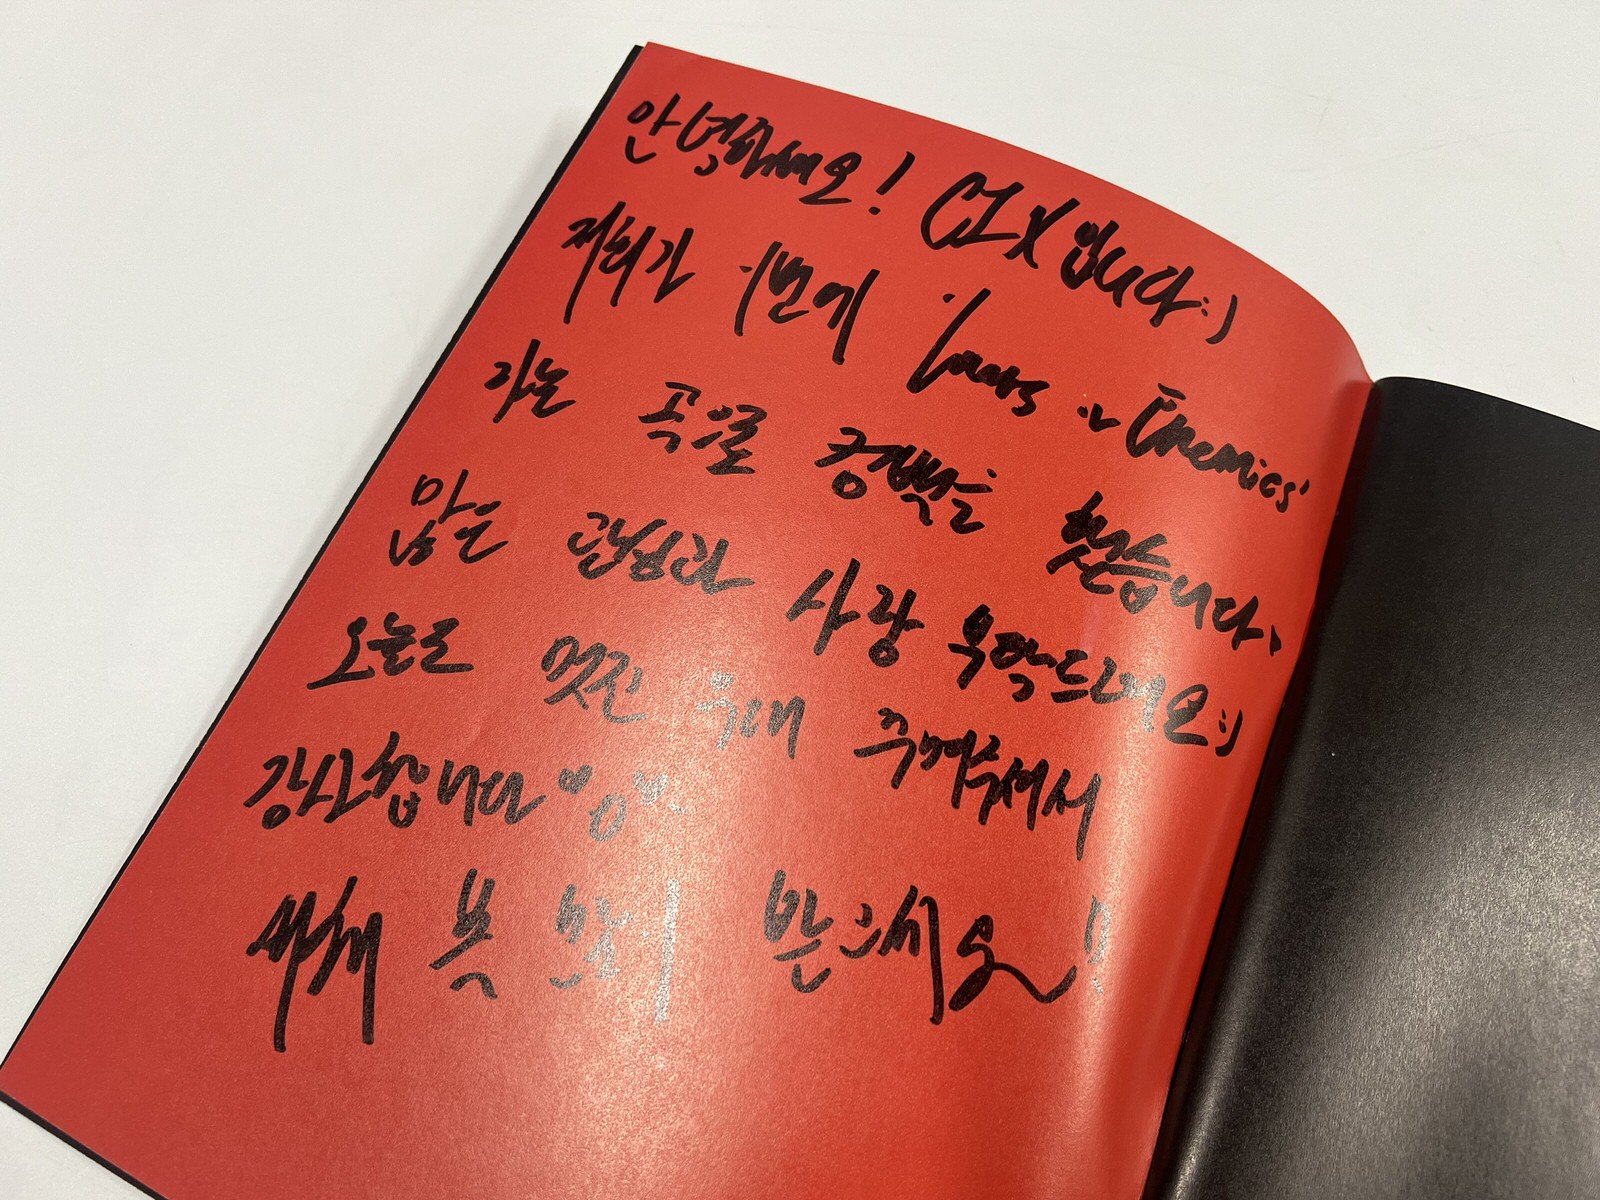 안녕하세요! CIX입니다:)
저희가 이번에 'Lovers or Enemies'
라는 곡으로 컴백을 했습니다.
많은 관심과 사랑 부탁드려요:)
오늘도 멋진 무대 꾸며주셔서
감사합니다
새해 복 많이 받으세요!